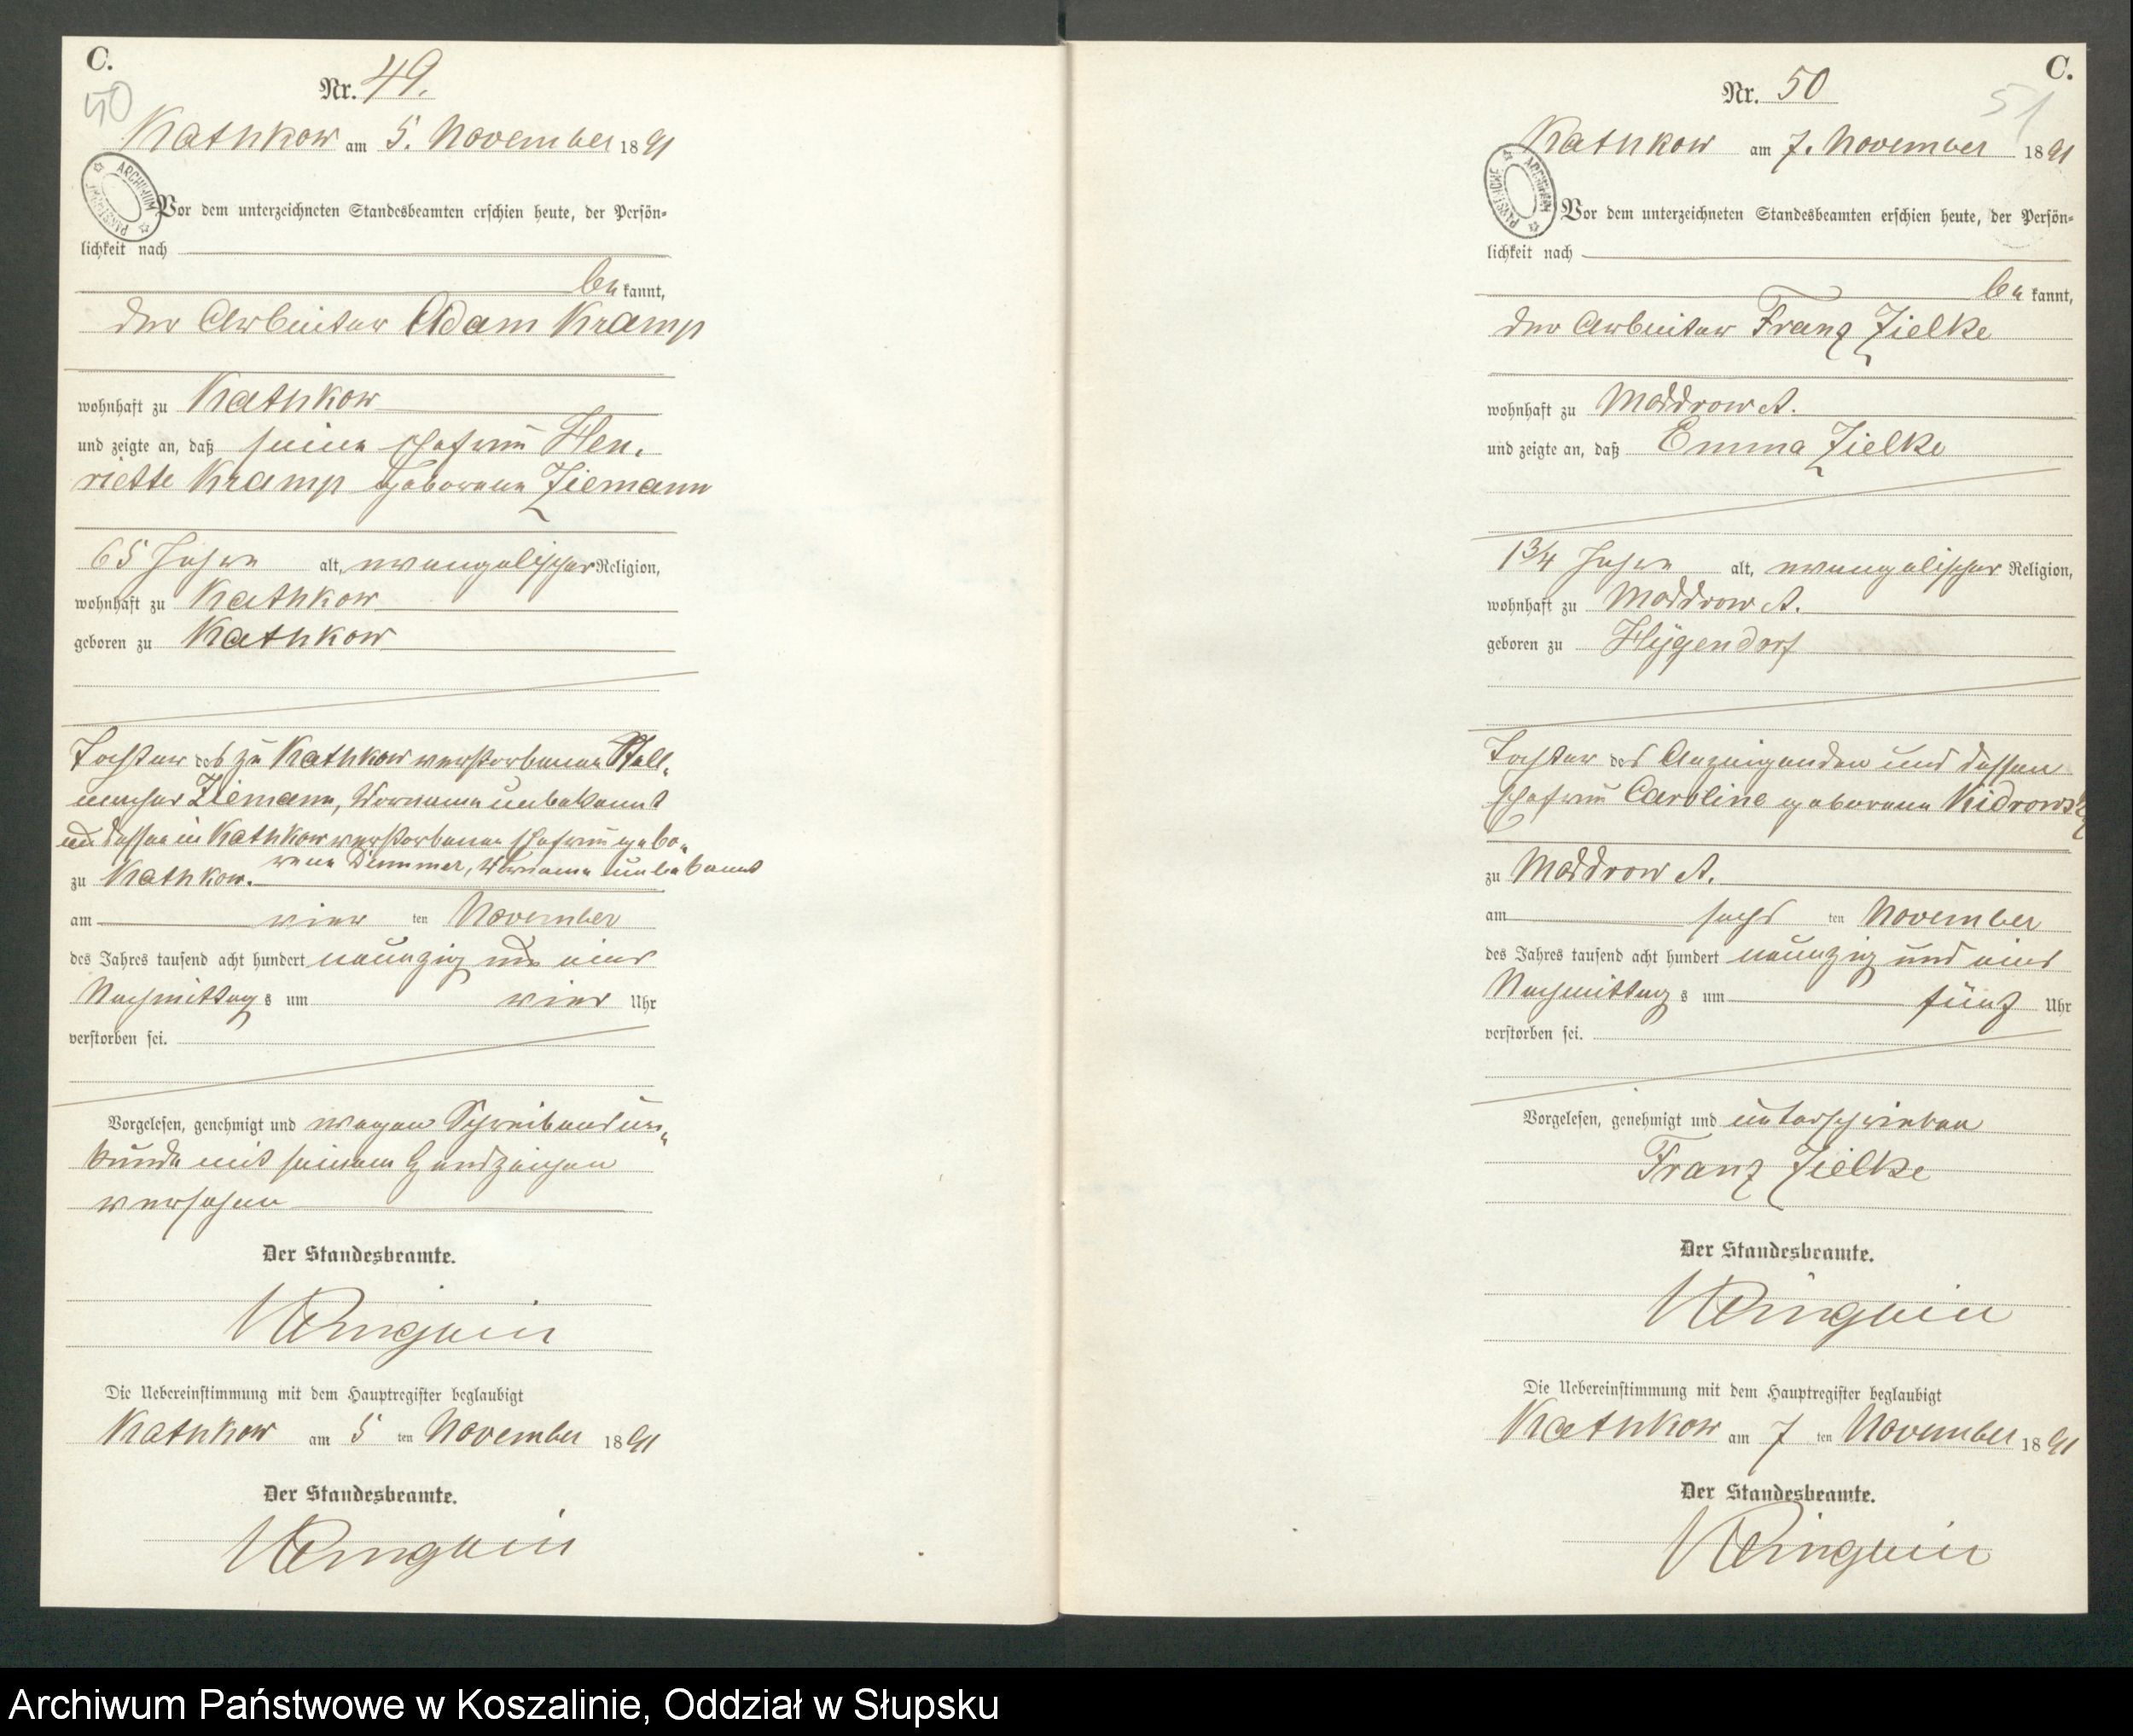 C.
50
Nr. 49.
Kathkow am 5. November 1891
ARCHIWUM PAŃSTWOWE
Vor dem unterzeichneten Standesbeamten erschien heute, der Persön-
lichkeit nach
be kannt,
der Arbeiter Adam Kramp
wohnhaft zu Kathkow
und zeigte an, daß seine Ehefrau Hen-
riette Kramp geborene Ziemann
65 Jahre alt, evangelischer Religion,
wohnhaft zu Kathkow
geboren zu Kathkow
Tochter des zu Kathkow verstorbenen Stell-
macher Ziemann, Vorname unbekannt
und dessen in Kathkow verstorbenen Ehefrau gebo-
rene Dummer, Vorname unbekannt
zu Kathkow.
am vier ten November
des Jahres tausend acht hundert neunzig und eins
Nachmittags um vier Uhr
verstorben sei.
Vorgelesen, genehmigt und wegen Schreibensun-
kunde mit seinem Handzeichen
versehen
Der Standesbeamte.
Die Uebereinstimmung mit dem Hauptregister beglaubigt
Kathkow am 5 ten November 1891
Der Standesbeamte.
C.
51
Nr. 50
Kathkow am 7. November 1891
ARCHIWUM PAŃSTWOWE
Vor dem unterzeichneten Standesbeamten erschien heute, der Persön-
lichkeit nach
be kannt,
der Arbeiter Franz Zielke
wohnhaft zu Moddrow A.
und zeigte an, daß Emma Zielke
1 3/4 Jahre alt, evangelischer Religion,
wohnhaft zu Moddrow A.
geboren zu Hygendorf
Tochter des Anzeigenden und dessen
Ehefrau Caroline geborene Kidrowski
zu Moddrow A.
am sechs ten November
des Jahres tausend acht hundert neunzig und eins
Nachmittags um fünf Uhr
verstorben sei.
Vorgelesen, genehmigt und unterschrieben
Franz Zielke
Der Standesbeamte.
Die Uebereinstimmung mit dem Hauptregister beglaubigt
Kathkow am 7 ten November 1891
Der Standesbeamte.
Archiwum Państwowe w Koszalinie, Oddział w Słupsku